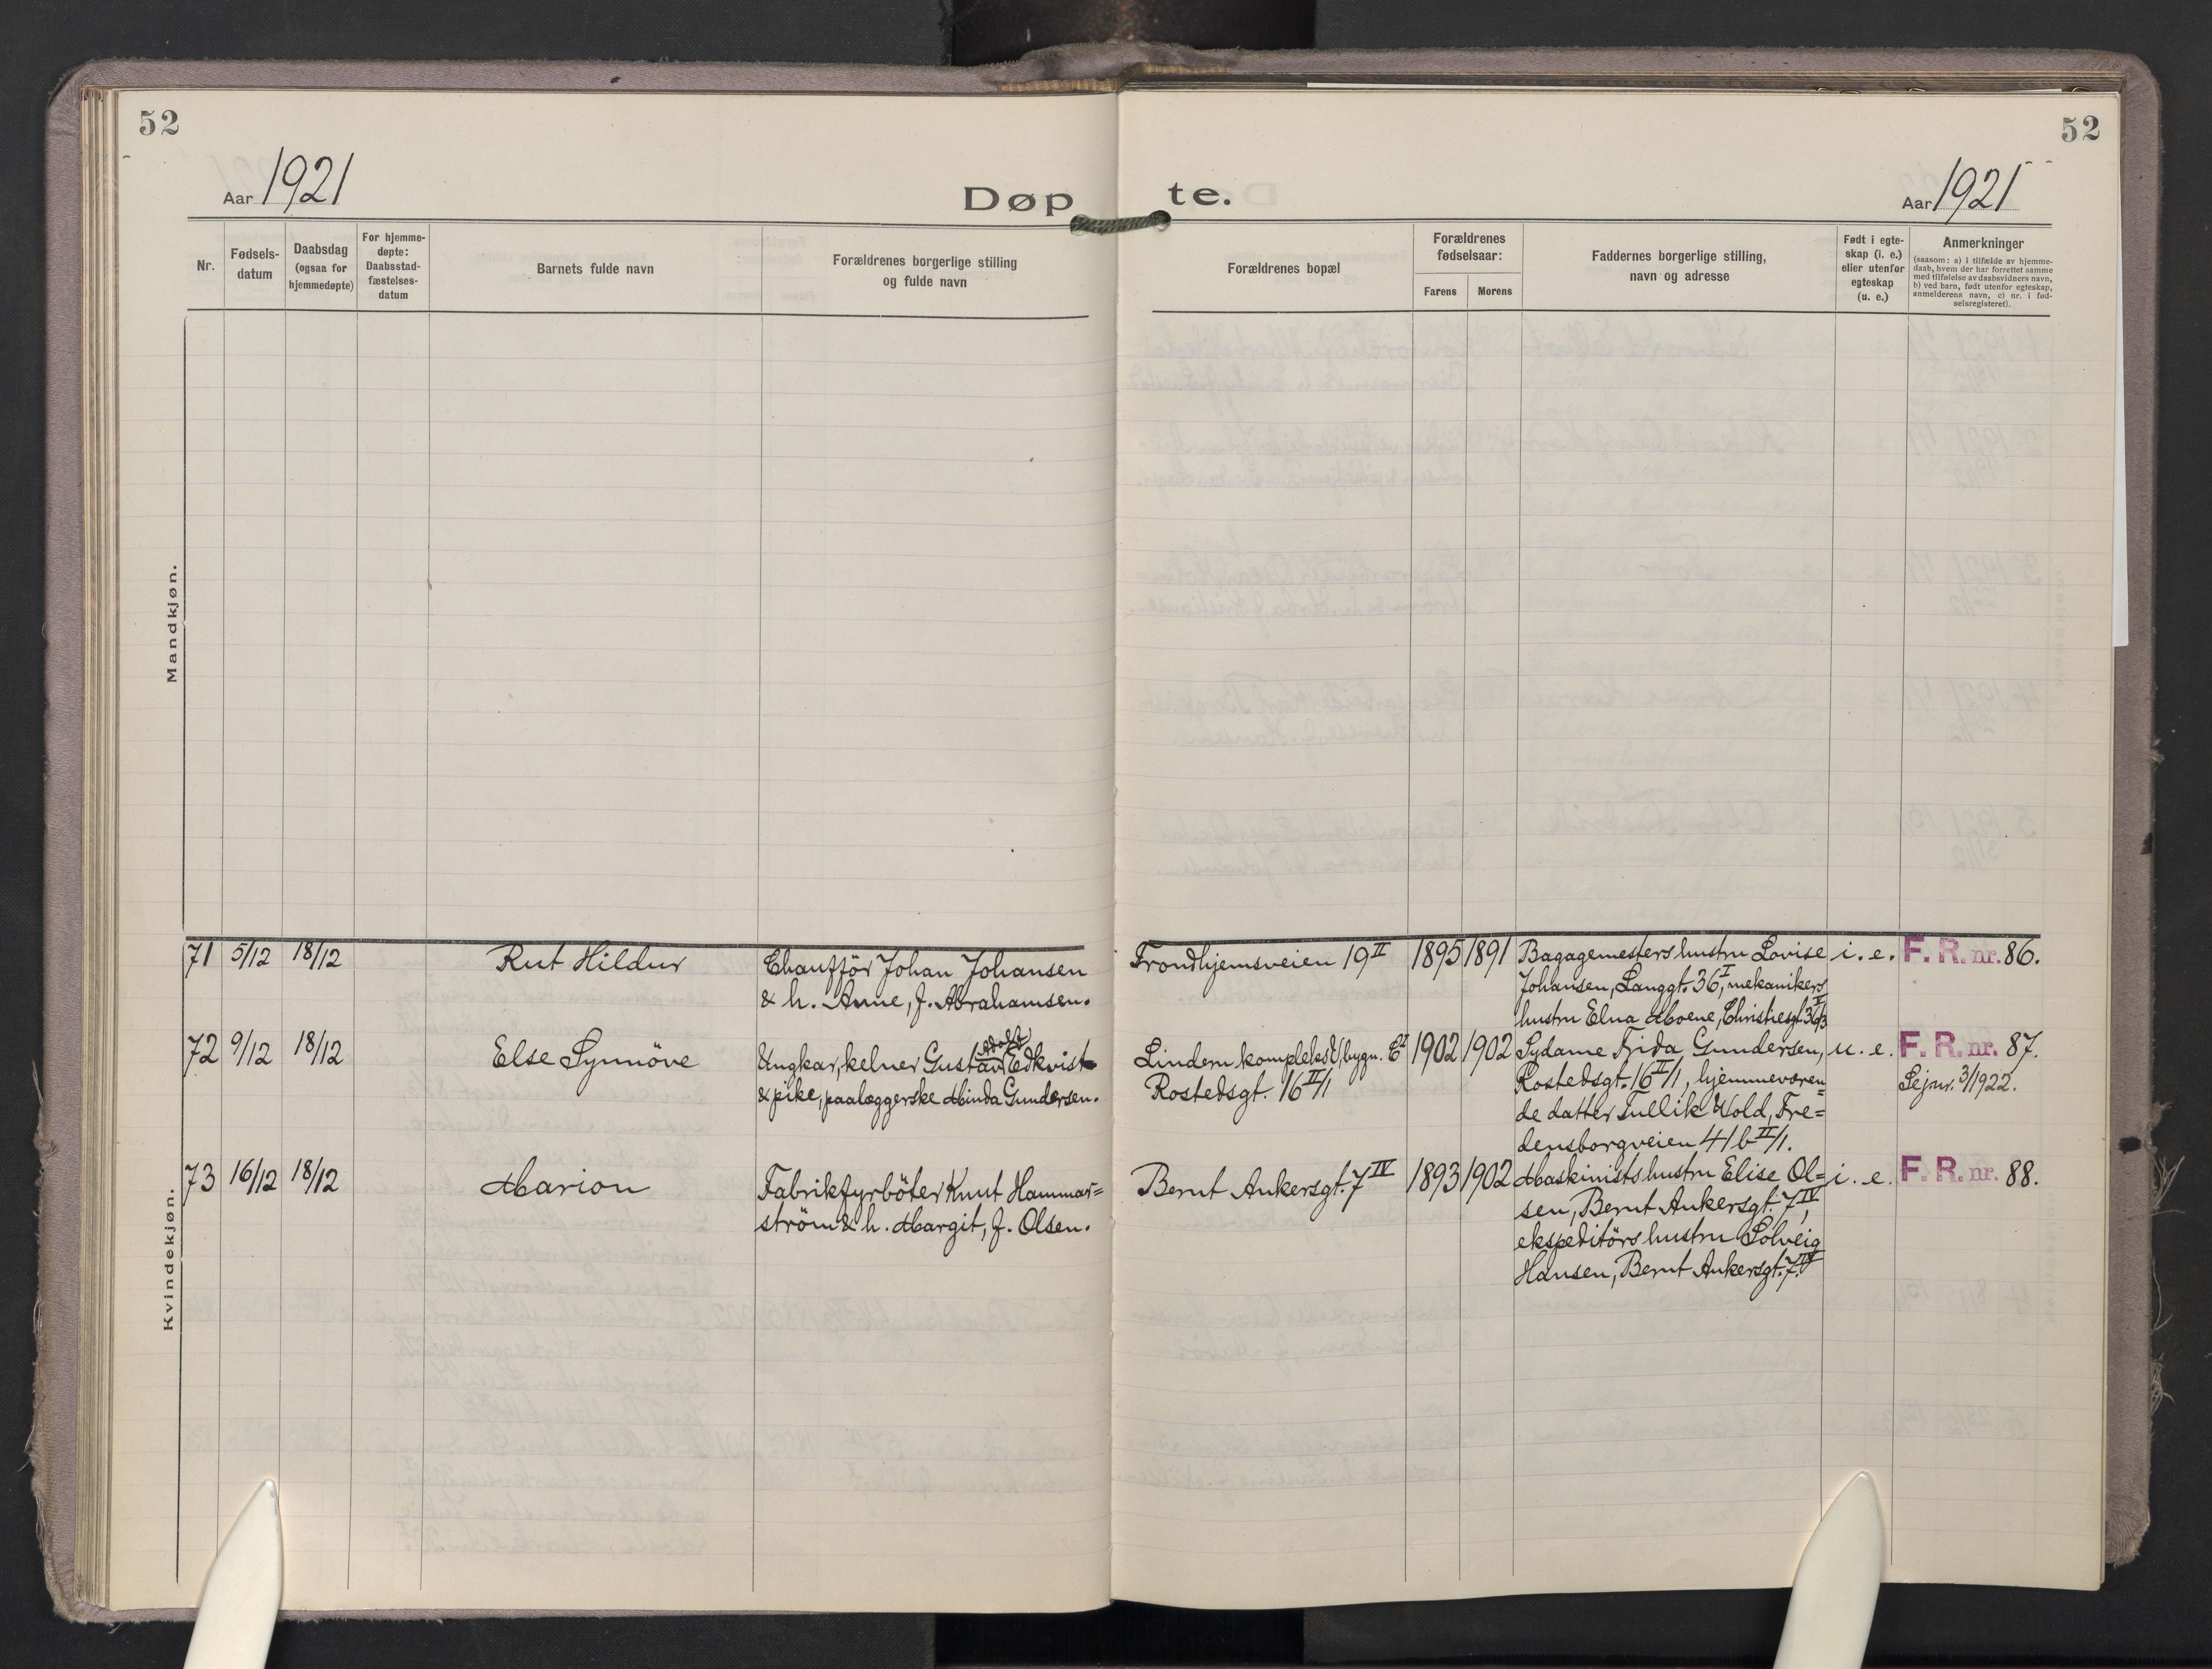 52
52
Aar 1921
Døpte.
Aar 1921
Nr.
Fødsels-
datum
Daabsdag
(ogsaa for
hjemmedøpte)
For hjemme-
døpte:
Daabsstad-
fæstelses-
datum
Barnets fulde navn
Forældrenes borgerlige stilling
og fulde navn
Forældrenes bopæl
Forældrenes
fødselsaar:
Farens
Morens
Faddernes borgerlige stilling,
navn og adresse
Født i egte-
skap (i. e.)
eller utenfor
egteskap
(u. e.)
Anmerkninger
(saasom: a) i tilfælde av hjemme-
daab, hvem der har forrettet samme
med tilføielse av daabsvidners navn,
b) ved barn, født utenfor egteskap,
anmelderens navn, c) nr. i fød-
selsregisteret).
Mandkjøn.
Kvindekjøn.
71 5/12 18/12 Rut Hildur
Chaufför Johan Johansen
& h. Anne, f. Abrahamsen.
Trondhjemsveien 19 II 1895 1891
Bagagemesters hustru Lovise
Johansen, Langgt. 36 I, mekanikers
hustru Elna Moene, Christiesgt.
i. e. F. R. nr. 86.
72 9/12 18/12 Else Synnöve
Adolf
Ungkar, kelner Gustav Edkvist
& pike, paalæggerske Minda Gundersen.
Lindern kompleks bygn.
Rostedsgt. 16 II/1
1902 1902
Sydame Frida Gundersen,
Rostedsgt. 16 II/1, hjemmeværen=
de datter Tullik Wold, Fre=
densborgveien 41 b II/1.
u. e. F. R. nr. 87.
Sejnr. 3/1922.
73 16/12 18/12 Marion
Fabrikfyrböter Knut Hammar=
ström & h. Margit, f. Olsen.
Bernt Ankersgt. 7 IV 1893 1902
Maskinists hustru Elise Ol=
sen, Bernt Ankersgt. 7 IV,
ekspeditörs hustru Solveig
Hansen, Bernt Ankersgt. 7 IV
i. e. F. R. nr. 88.